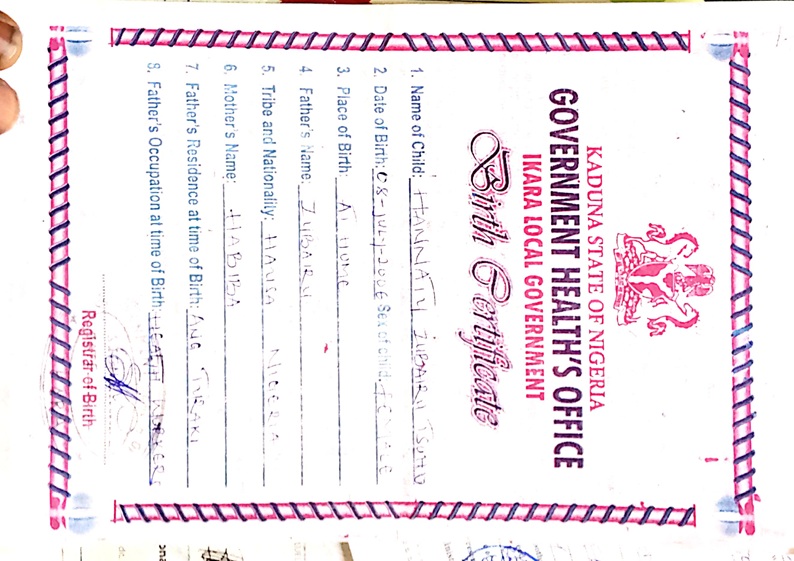 KADUNA STATE OF NIGERIA
GOVERNMENT HEALTH'S OFFICE
IKARA LOCAL GOVERNMENT
Birth Certificate
1. Name of Child: HANNATU ZUBAIRU
2. Date of Birth: 08-JULY-2006 Sex of child: female
3. Place of Birth: At Home
4. Father's Name: ZUBAIRU
5. Tribe and Nationality: HAUSA NIGERIA
6. Mother's Name: HABIBA
7. Father's Residence at time of Birth: ANG TURAKI
8. Father's Occupation at time of Birth: HEALTH WORKER
Registrar of Birth